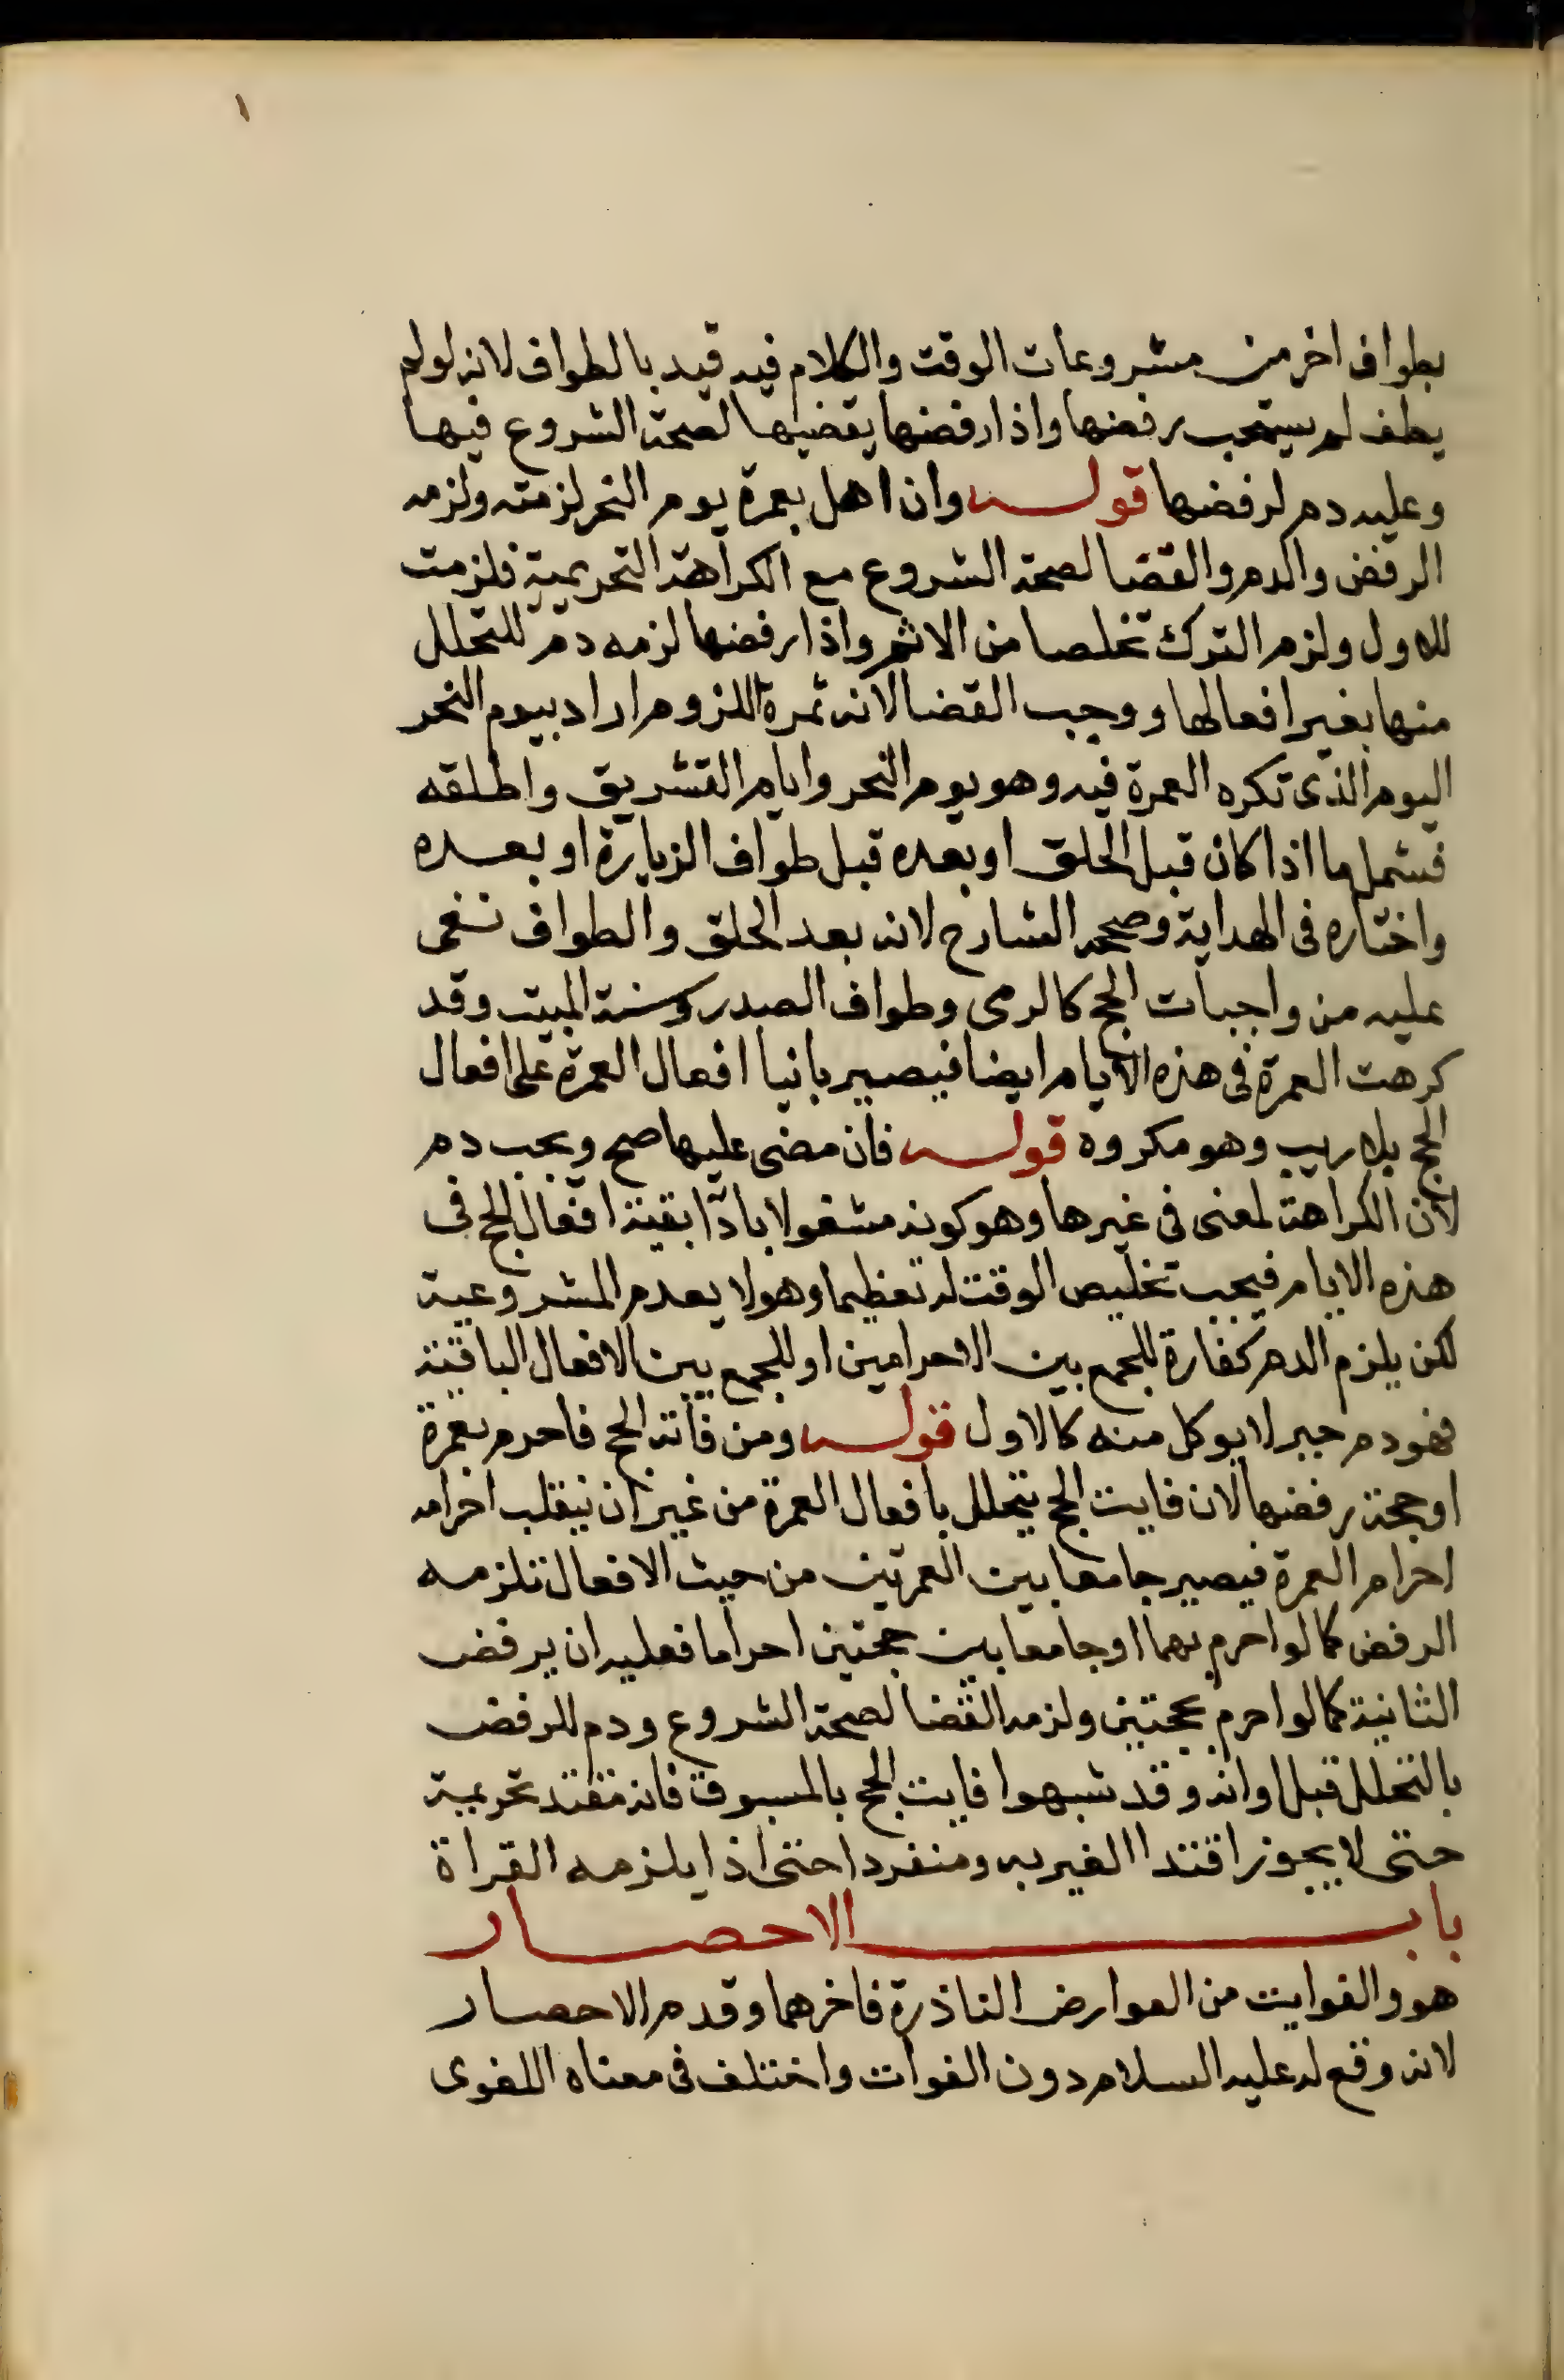 ١
بطواف اخر من مشروعات الوقت والكلام فيه قيد بالطواف لانه لو لم
يطف لم يستحب رفضها واذا رفضها يقضيها لصحة الشروع فيها
وعليه دم لرفضها قوله وان اهل بعمرة يوم النحر لزمته ولزمه
الرفض والدم والقضا لصحة الشروع مع الكراهة التحريمية فلزمت
للاول ولزم الترك تخلصا من الاثم واذا رفضها لزمه دم للتحلل
منها بغير افعالها ووجب القضا لانه ثمرة اللزوم اراد بيوم النحر
اليوم الذى تكره العمرة فيه وهو يوم النحر وايام التشريق واطلقه
فشمل ما اذا كان قبل الحلق او بعده قبل طواف الزيارة او بعده
واختاره فى الهداية وصححه الشارح لانه بعد الحلق والطواف نفى
عليه من واجبات الحج كالرمى وطواف الصدر وسنة المبيت وقد
كرهت العمرة فى هذه الايام ايضا فيصير بانيا افعال العمرة على افعال
الحج بلا ريب وهو مكروه قوله فان مضى عليها صح ويجب دم
لان الكراهة لمعنى فى غيرها وهو كونه مشغولا بادا بقية افعال الحج فى
هذه الايام فيجب تخليص الوقت له تعظيما وهو لا يعدم المشروعية
لكن يلزم الدم كفارة للجمع بين الاحرامين او للجمع بين الافعال الباقية
فهو دم جبر لا يوكل منه كالاول قوله ومن فاته الحج فاحرم بعمرة
او حجة رفضها لان فايت الحج يتحلل بافعال العمرة من غير ان ينقلب احرامه
احرام العمرة فيصير جامعا بين العمرتين من حيث الافعال تلزمه
الرفض كما لو احرم بهما او جامعا بين حجتين احراما فعليه ان يرفض
الثانية كما لو احرم بحجتين ولزمه القضا لصحة الشروع ودم للرفض
بالتحلل قبل اوانه وقد شبهوا فايت الحج بالمسبوق فانه مقتد تحريمية
حتى لا يجوز اقتدا الغير به ومنفرد احتى اذا يلزمه القراة
باب الاحصار
هو والفوايت من العوارض الناذرة فاخرهما وقدم الاحصار
لانه وقع له عليه السلام دون الفوات واختلف فى معناه اللغوى